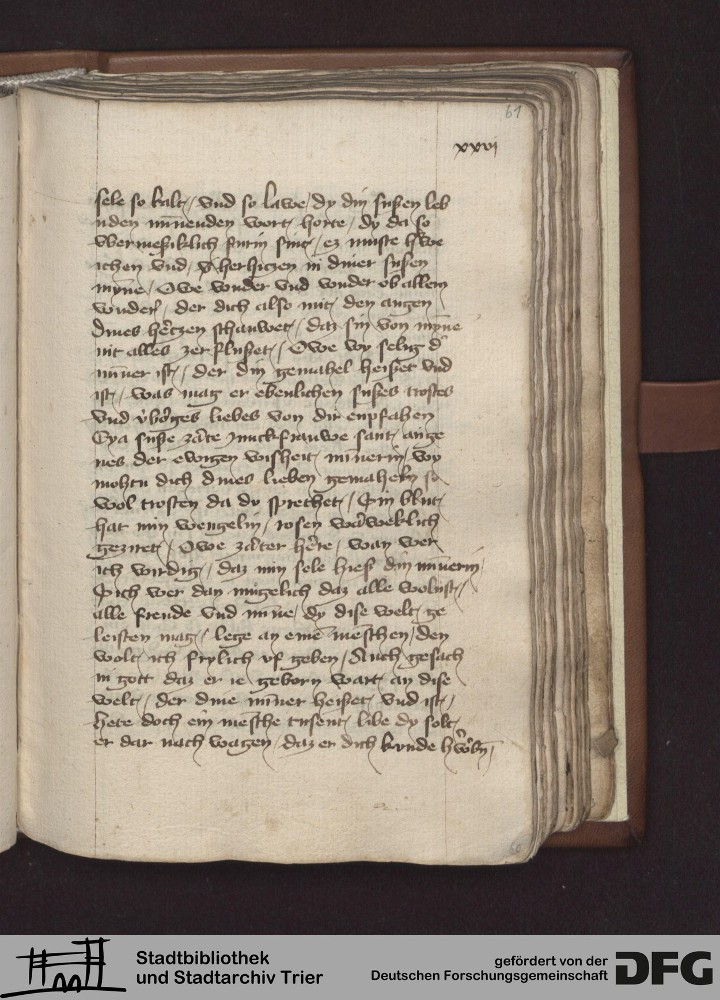 61
xxvi
sele so kalt / vnd so lawe / dy din sußen leb
nden mīnenden wort / horte / dy da so
vbermeßiklich furin sint / ez muste
ichen vnd / in diner sußen
mȳne / Owe wonder vnd wonder ob allem
wonder / der dich also mit den augen
dines hertzen schauwet / daz sin von mȳne
nit alles zerflußet / Owe wy selig d'
mīner ist / der din gemahel heißet vnd
ist / was mag er ebenlichen sußes trostes
vnd liebes von dir enpfahen
Eya suße zarte junckfrauwe sant ange
nes der ewigen wisheit mīnerin / wy
mohtu dich dines lieben gemaheln so
wol trosten da du sprechet / Sin blut
hat min wengelin / rosen
geziret / Owe zarter here / wan wer
ich wirdig / daz min sele hieß din mīnerin /
Sich wer dan mugelich daz alle wolust /
alle freude vnd mīne / dy dise welt ge
leisten mag / lege an eīnē menschen / den
wolt ich frylich vf geben / Auch gesach
in gott daz er ie geborn wart an dise
welt / der dine mīner heißet vnd ist /
hete doch ein mensche tusent libe dy solt
er dar nach wagen / daz er dich kunde
Stadtbibliothek
und Stadtarchiv Trier
gefördert von der
Deutschen Forschungsgemeinschaft
DFG